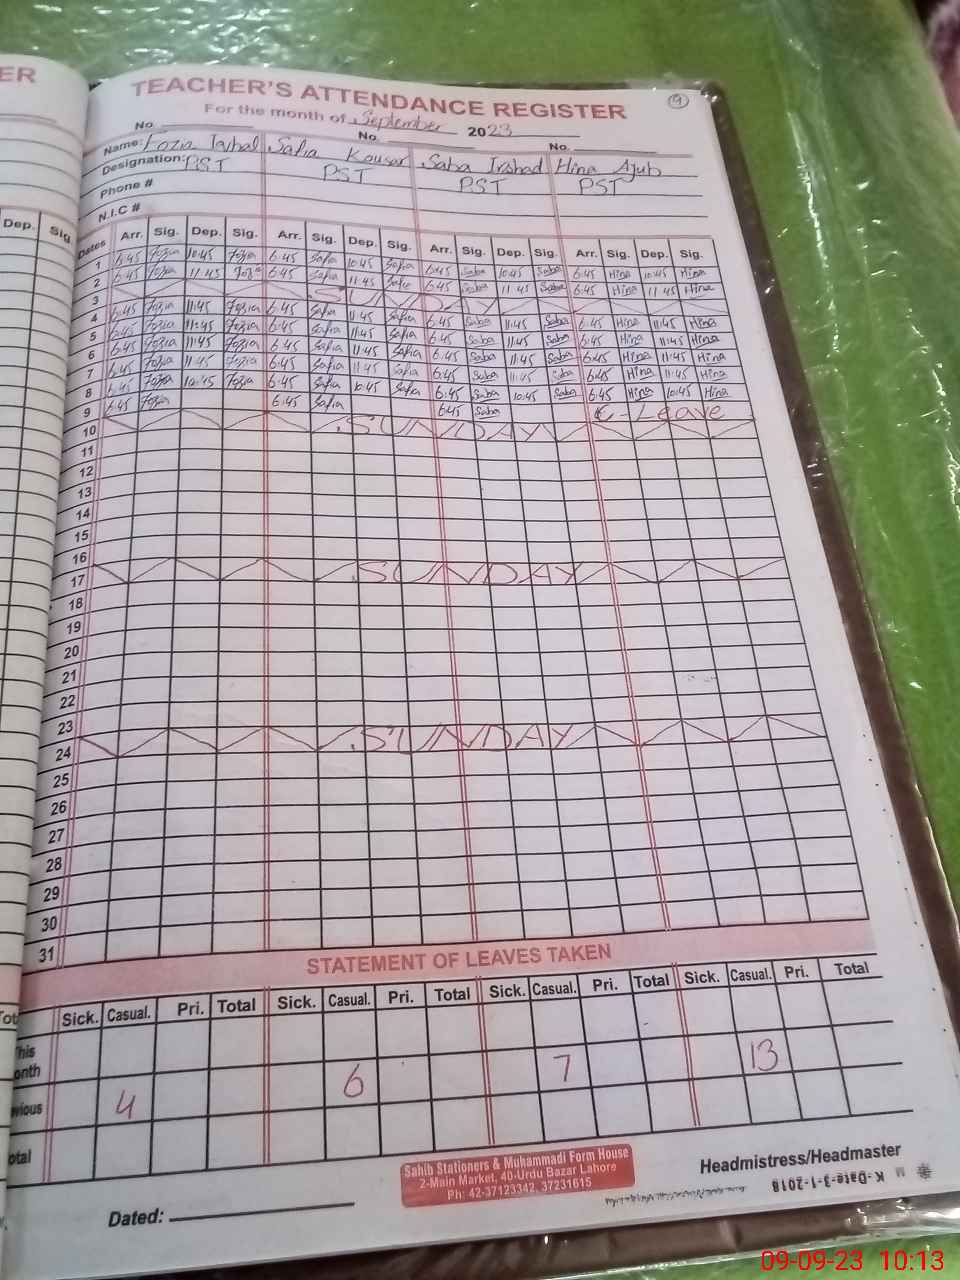 ER
TEACHER'S ATTENDANCE REGISTER
9
For the month of September 2023
No. No. No.
Name: Fozia Iqbal Safia Kousar Saba Irshad Hina Ajub
Designation: PST PST PST PST
Phone #
N.I.C #
Dep. Sig.
Dates Arr. Sig. Dep. Sig. Arr. Sig. Dep. Sig. Arr. Sig. Dep. Sig. Arr. Sig. Dep. Sig.
1 6:45 Fozia 10:45 Fozia 6:45 Safia 10:45 Safia 6:45 Saba 10:45 Saba 6:45 Hina 10:45 Hina
2 6:45 Fozia 11:45 Fozia 6:45 Safia 11:45 Safia 6:45 Saba 11:45 Saba 6:45 Hina 11:45 Hina
3 SUNDAY
4 6:45 Fozia 11:45 Fozia 6:45 Safia 11:45 Safia 6:45 Saba 11:45 Saba 6:45 Hina 11:45 Hina
5 6:45 Fozia 11:45 Fozia 6:45 Safia 11:45 Safia 6:45 Saba 11:45 Saba 6:45 Hina 11:45 Hina
6 6:45 Fozia 11:45 Fozia 6:45 Safia 11:45 Safia 6:45 Saba 11:45 Saba 6:45 Hina 11:45 Hina
7 6:45 Fozia 11:45 Fozia 6:45 Safia 11:45 Safia 6:45 Saba 11:45 Saba 6:45 Hina 11:45 Hina
8 6:45 Fozia 10:45 Fozia 6:45 Safia 10:45 Safia 6:45 Saba 10:45 Saba 6:45 Hina 10:45 Hina
9 6:45 Fozia 6:45 Safia 6:45 Saba Leave
10 SUNDAY
11
12
13
14
15
16
17 SUNDAY
18
19
20
21
22
23
24 SUNDAY
25
26
27
28
29
30
31
STATEMENT OF LEAVES TAKEN
Sick. Casual. Pri. Total Sick. Casual. Pri. Total Sick. Casual. Pri. Total Sick. Casual. Pri. Total
This
onth
vious 4 6 7 13
otal
Sahib Stationers & Muhammadi Form House
2-Main Market, 40-Urdu Bazar Lahore
Ph: 42-37123342, 37231615
Headmistress/Headmaster
K-Date-3-1-2018
Dated:
09-09-23 10:13